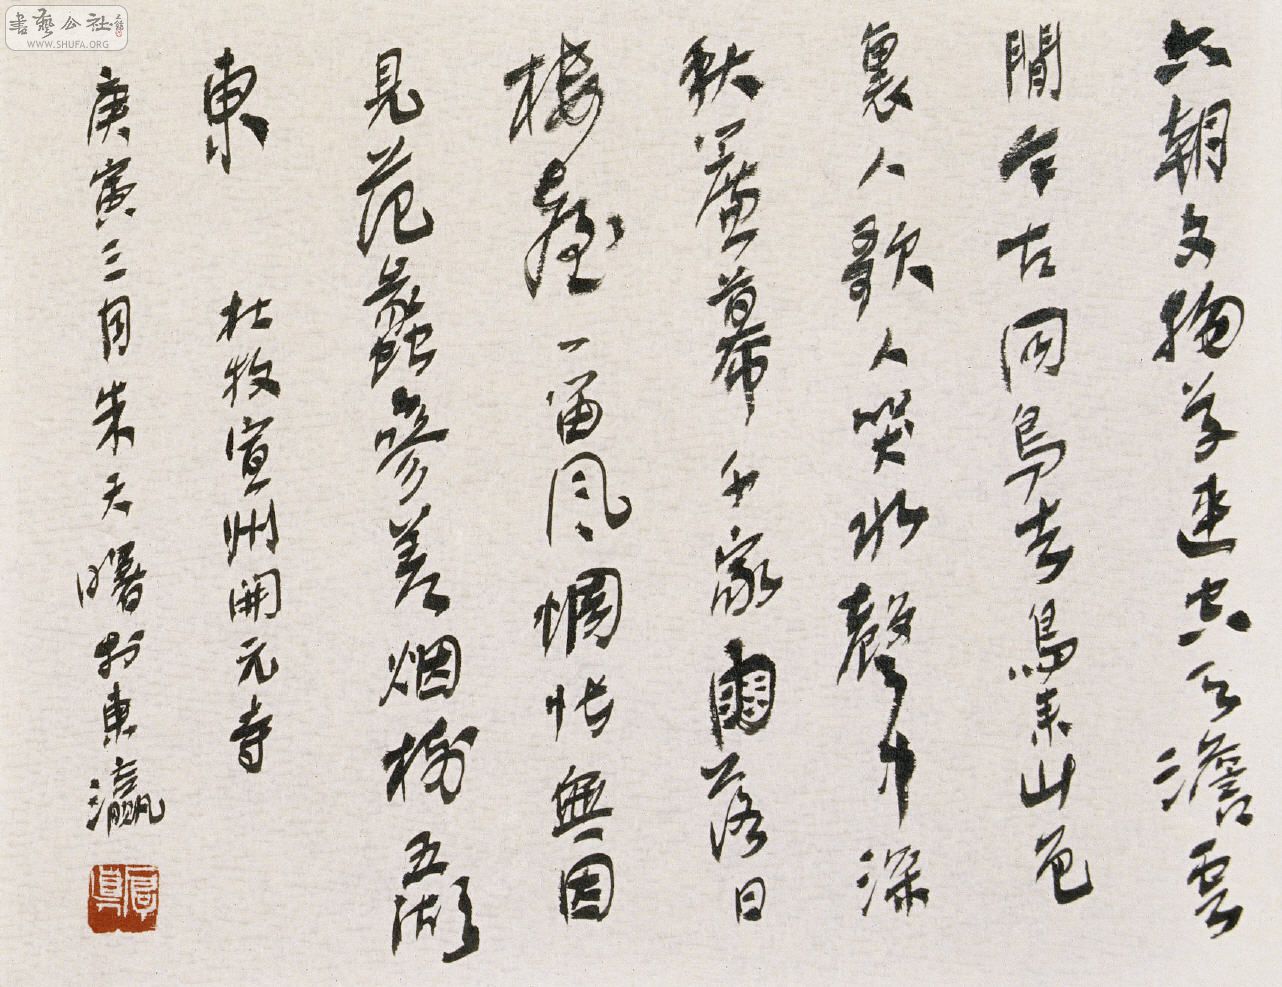 書藝公社
WWW.SHUFA.ORG
六朝文物草連空天澹雲
閒今古同鳥去鳥来山色
裏人歌人哭水聲中深
秋簾幕千家雨落日
樓臺一笛風惆悵無因
見范蠡參差烟樹五湖
東
杜牧宣州開元寺
庚寅三月朱天曙於東瀛